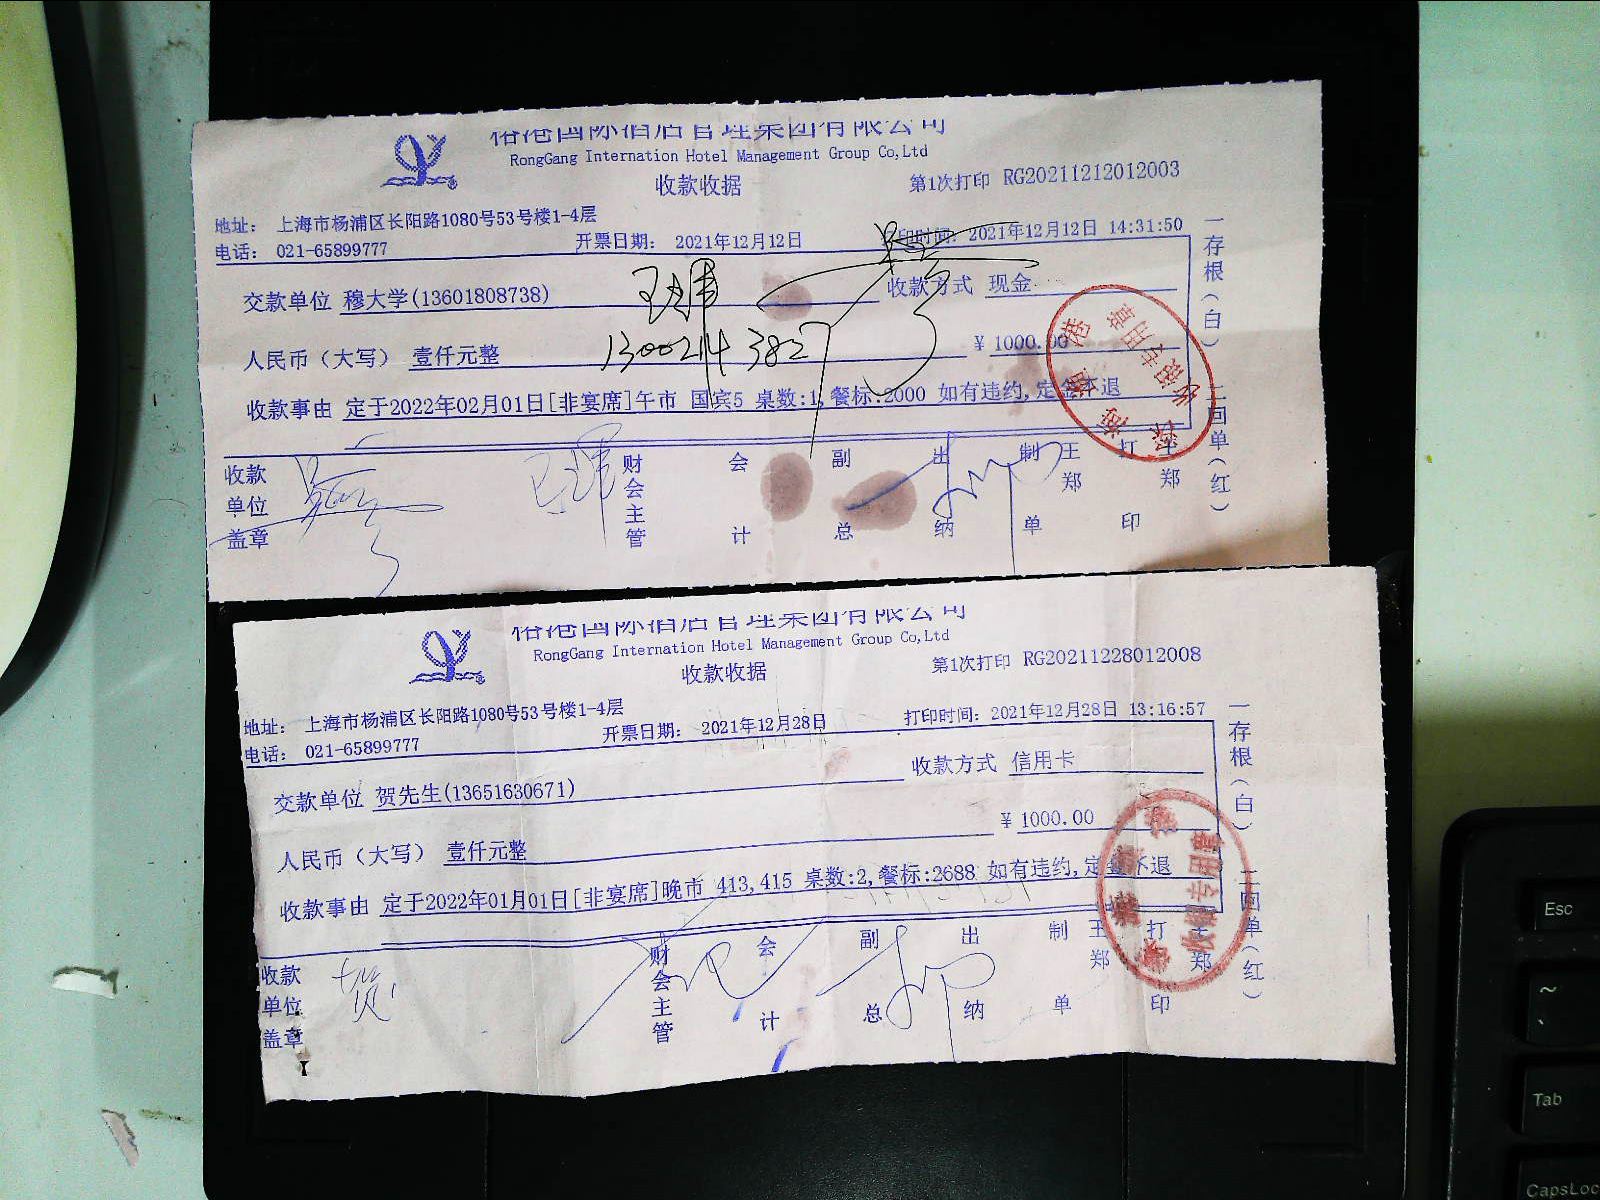 裕港国际酒店管理集团有限公司
RongGang Internation Hotel Management Group Co,Ltd
收款收据
第1次打印 RG20211212012003
地址: 上海市杨浦区长阳路1080号53号楼1-4层
电话: 021-65899777 开票日期: 2021年12月12日 印时间: 2021年12月12日 14:31:50
交款单位 穆大学(13601808738) 收款方式 现金
人民币(大写) 壹仟元整 ¥ 1000.00
收款事由 定于2022年02月01日[非宴席]午市 国宾5 桌数:1,餐标:2000 如有违约,定金不退
收款单位盖章 财会主管 会计 副总 出纳 制单 王郑 打印 王郑
一存根(白) 二回单(红)
裕港国际酒店管理集团有限公司
RongGang Internation Hotel Management Group Co,Ltd
收款收据
第1次打印 RG20211228012008
地址: 上海市杨浦区长阳路1080号53号楼1-4层
电话: 021-65899777 开票日期: 2021年12月28日 打印时间: 2021年12月28日 13:16:57
交款单位 贺先生(13651630671) 收款方式 信用卡
人民币(大写) 壹仟元整 ¥ 1000.00
收款事由 定于2022年01月01日[非宴席]晚市 413,415 桌数:2,餐标:2688 如有违约,定金不退
收款单位盖章 财会主管 会计 副总 出纳 制单 王郑 打印 王郑
一存根(白) 二回单(红)
收银专用章
Esc
~
Tab
CapsLoc